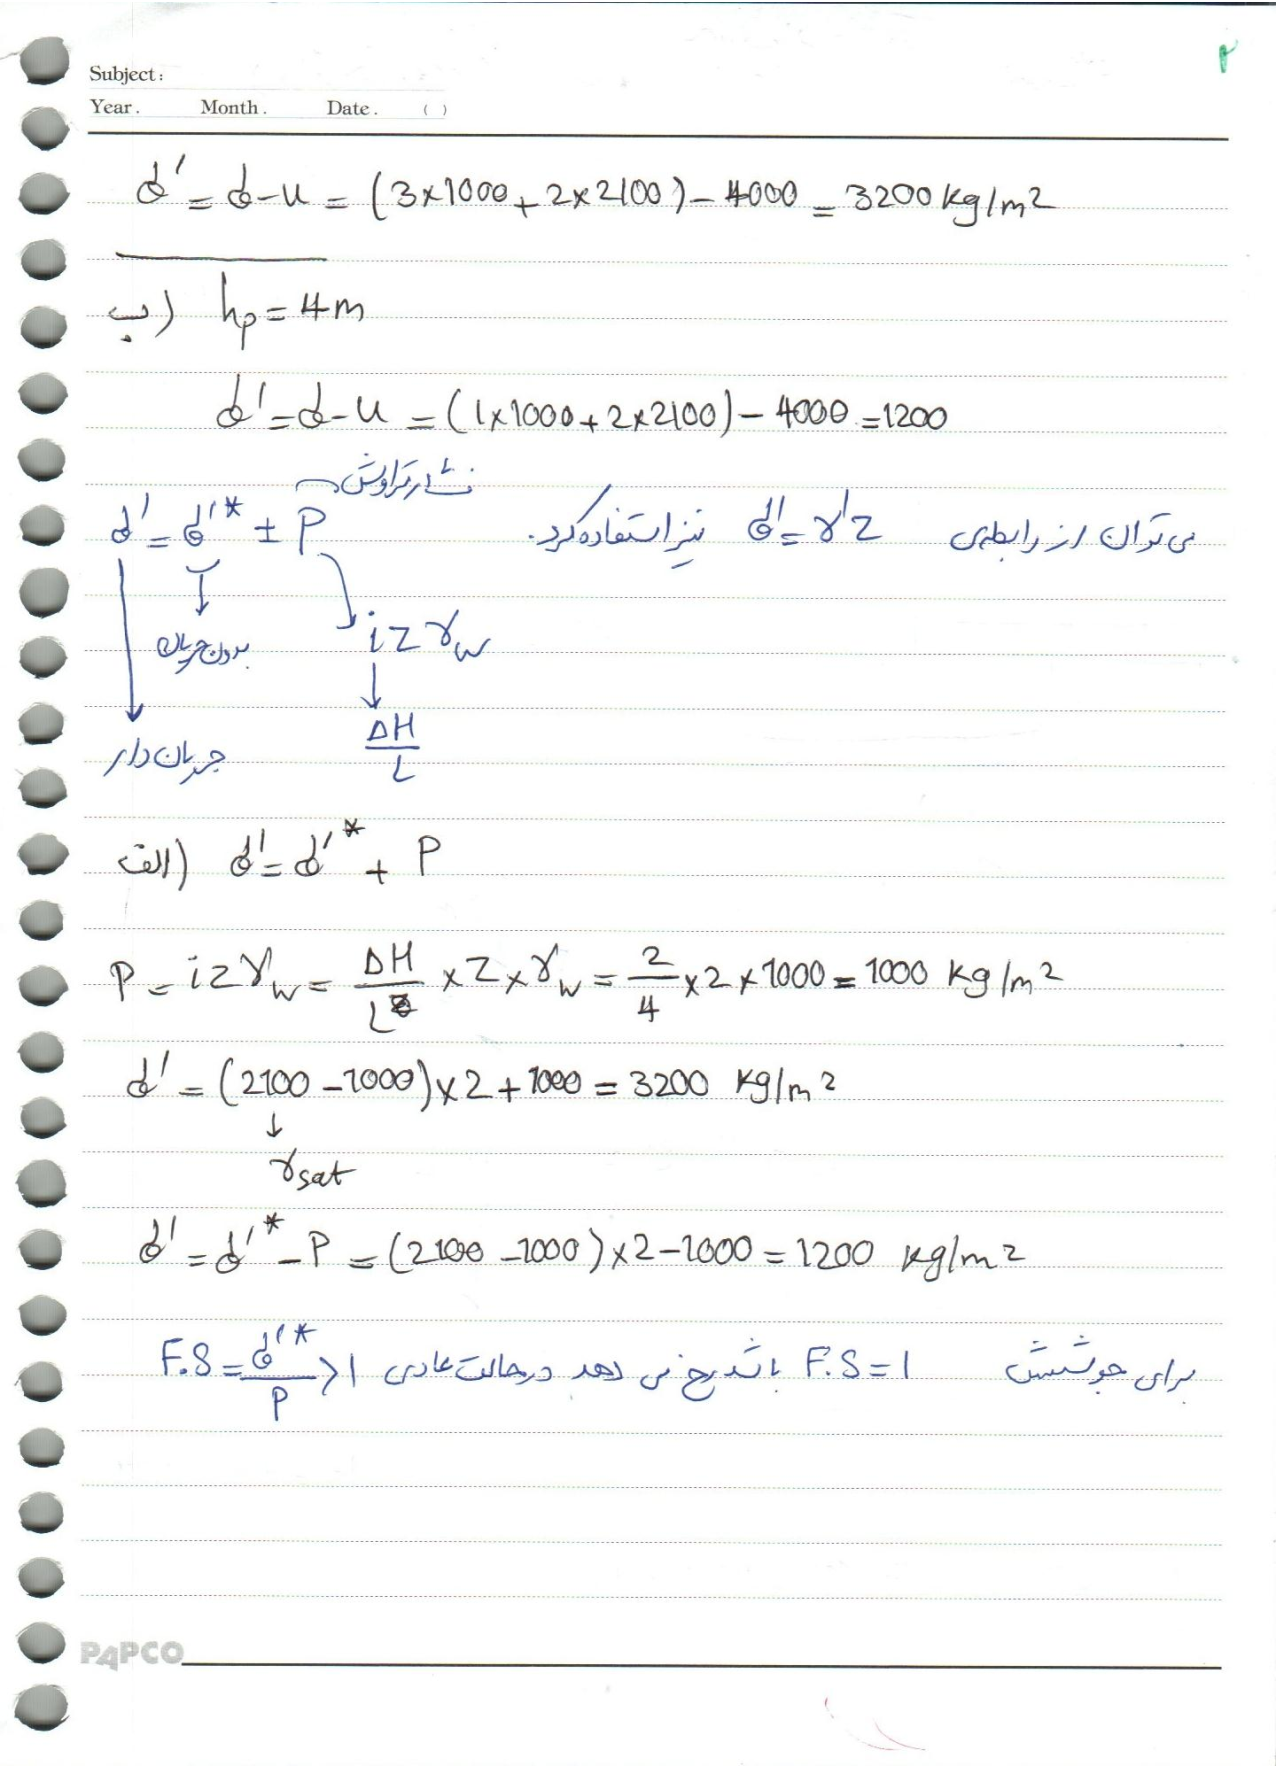 ۲
Subject:
Year. Month. Date. ( )
σ' = σ-u = (3×1000 + 2×2100) - 4000 = 3200 kg/m2
ب) hp = 4m
σ' = σ-u = (1×1000 + 2×2100) - 4000 = 1200
فشار تراوش
می توان از رابطه‌ی σ' = γ'z نیز استفاده کرد.
σ' = σ'* ± P
بدون جریان
izγw
جریان دار
ΔH/L
الف) σ' = σ'* + P
P = izγw = ΔH/L × z × γw = 2/4 × 2 × 1000 = 1000 kg/m2
σ' = (2100 - 1000) × 2 + 1000 = 3200 kg/m2
γsat
σ' = σ'* - P = (2100 - 1000) × 2 - 1000 = 1200 kg/m2
برای جوشش F.S = 1 باشد رخ می دهد در حالت عادی F.S = σ'*/P > 1
PAPCO